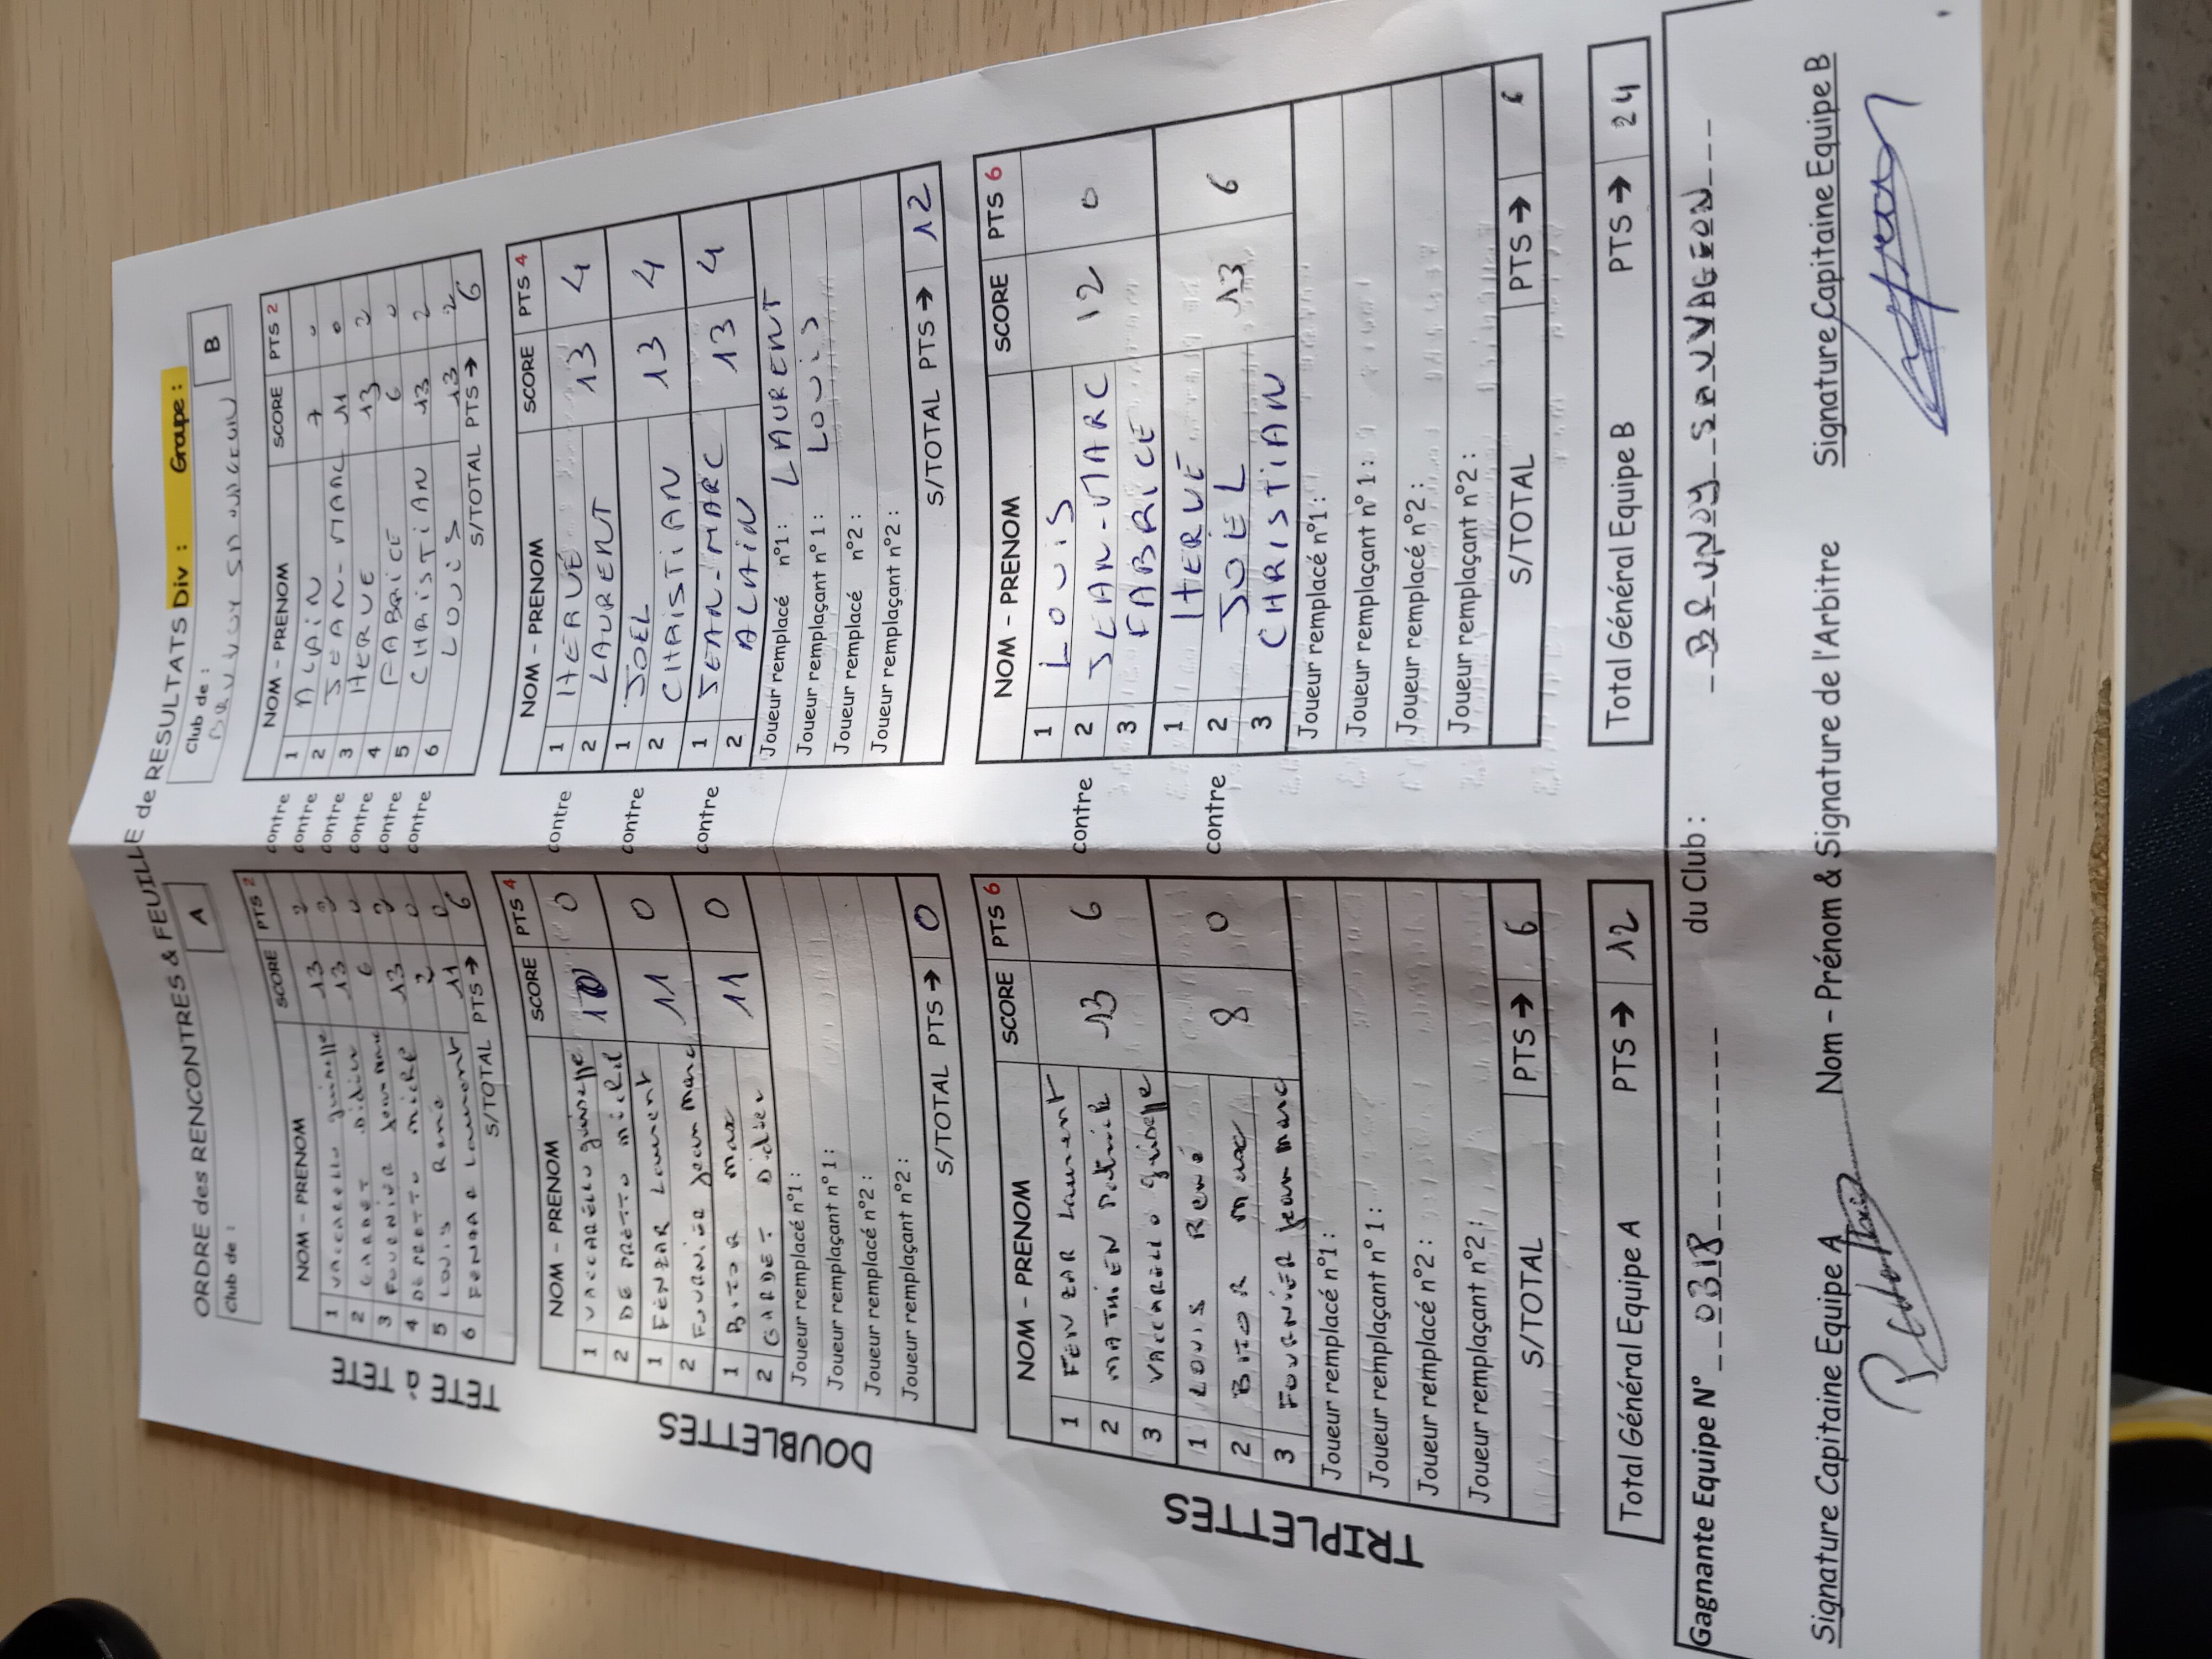 ORDRE des RENCONTRES & FEUILLE de RESULTATS Div : Groupe :
Club de : A
Club de : B
TETE à TETE
NOM - PRENOM SCORE PTS 2
1 VACCARELLO 13 2
2 GARDET Didier 13 2
3 FOURNIER Jean Marc 6 0
4 DEPRETTO 13 2
5 LOUIS René 2 0
6 Laurent 11 0
S/TOTAL PTS → 6
contre
contre
contre
contre
contre
contre
NOM - PRENOM SCORE PTS 2
1 ALAIN 7 0
2 JEAN-MARC 11 0
3 HERVE 13 2
4 FABRICE 6 0
5 CHRISTIAN 13 2
6 LOUIS 13 2
S/TOTAL PTS → 6
DOUBLETTES
NOM - PRENOM SCORE PTS 4
1 VACCARELLO 10 0
2 DE PRETTO
1 FENZAR Laurent 11 0
2 FOURNIER Jean Marc
1 BITOR Max 11 0
2 GARDET Didier
Joueur remplacé n°1 :
Joueur remplaçant n°1 :
Joueur remplacé n°2 :
Joueur remplaçant n°2 :
S/TOTAL PTS → 0
contre
contre
contre
NOM - PRENOM SCORE PTS 4
1 HERVÉ 13 4
2 LAURENT
1 JOEL 13 4
2 CHRISTIAN
1 JEAN-MARC 13 4
2 ALAIN
Joueur remplacé n°1 : LAURENT
Joueur remplaçant n°1 : LOUIS
Joueur remplacé n°2 :
Joueur remplaçant n°2 :
S/TOTAL PTS → 12
TRIPLETTES
NOM - PRENOM SCORE PTS 6
1 FENZAR Laurent
2 MATHIEN Patrick 13 6
3 VACCARELLO
1 LOUIS René
2 BITOR Max 8 0
3 FOURNIER Jean Marc
Joueur remplacé n°1 :
Joueur remplaçant n°1 :
Joueur remplacé n°2 :
Joueur remplaçant n°2 :
S/TOTAL PTS → 6
contre
contre
NOM - PRENOM SCORE PTS 6
1 LOUIS
2 JEAN-MARC 12 0
3 FABRICE
1 HERVÉ
2 JOEL 13 6
3 CHRISTIAN
Joueur remplacé n°1 :
Joueur remplaçant n°1 :
Joueur remplacé n°2 :
Joueur remplaçant n°2 :
S/TOTAL PTS → 6
Total Général Equipe A PTS → 12
Total Général Equipe B PTS → 24
Gagnante Equipe N° 031B du Club : BRUNOY SAUVAGEON
Signature Capitaine Equipe A Nom - Prénom & Signature de l'Arbitre Signature Capitaine Equipe B